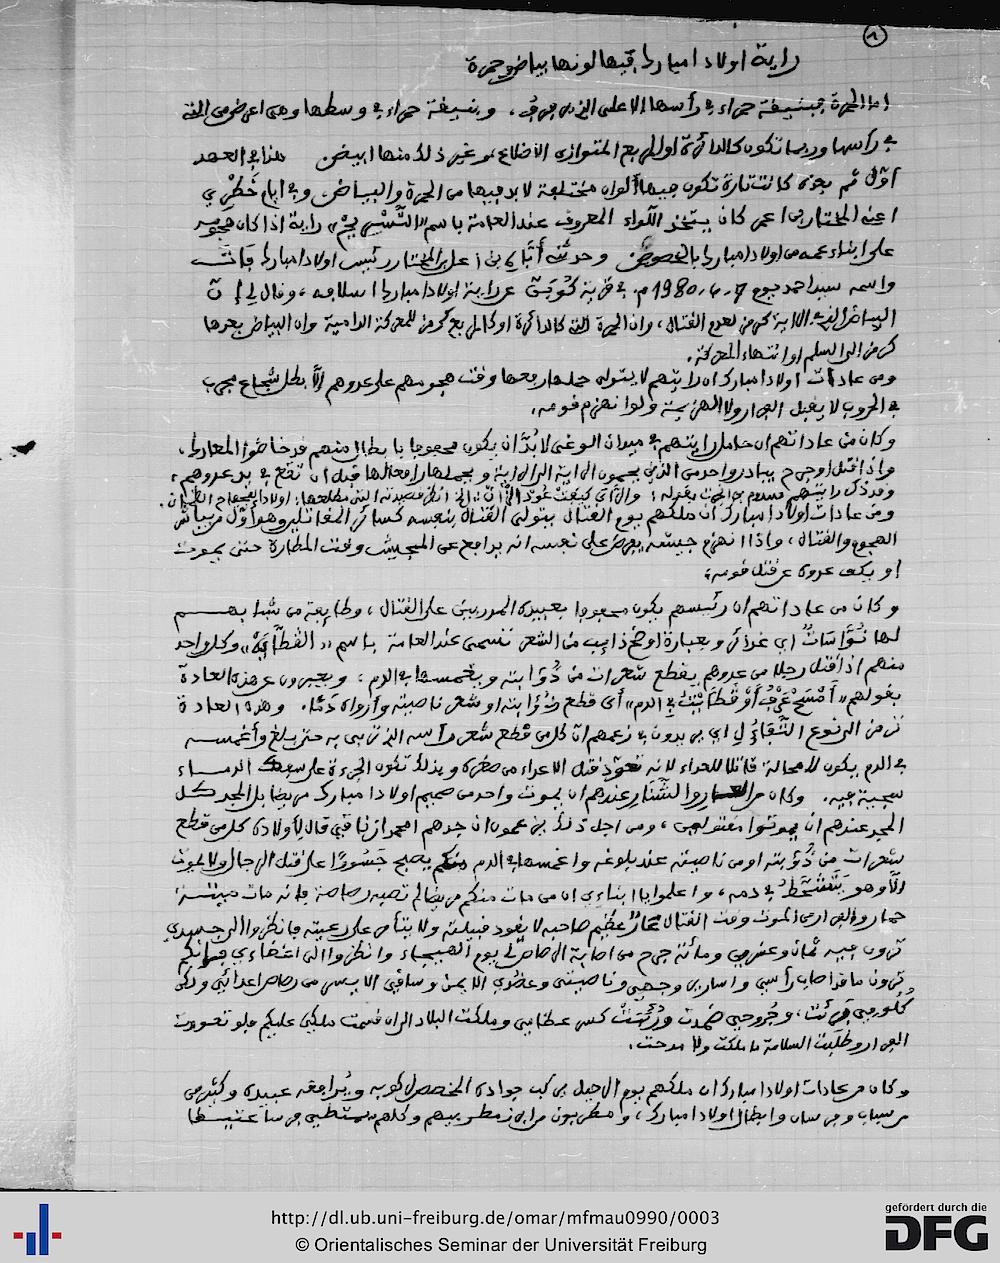 ٨
راية اولاد امبارك فيها لونها بياض وحمرة
اما الحمرة فبنيفة حمراء في رأسها الاعلى الذي يرفرف، وبنيفة حمراء في وسطها وهي اعرض من التي
في رأسها وربما تكون كالدائرة او المربع المتوازي الاضلاع وغير ذلك منها ابيض هذا في العهد
اول ثم بعد كانت تارة تكون فيها ألوان مختلفة لابد فيها من الحمرة والبياض وفي ايام خطري
اعني المختار بن اعمر كان يتخذ اللواء المعروف عند العامة باسم راية اذا كان
على ابناء عمه من اولاد امبارك بالخصوص وحدثني بن اعل المختار رئيس اولاد امبارك
واسمه سيد احمد يوم 1980م، في قرية عن راية اولاد امبارك اسلافه، وقال لي إن
البياض الذي في الراية كرمز لعدم القتال، وان الحمرة التي كالدائرة او كالمربع كرمز للمعركة الدامية وان البياض بعدها
كرمز الى السلم او انتهاء المعركة.
ومن عادات اولاد امبارك ان رايتهم لا يتولى حملها رفعها وقت هجومهم على عدوهم إلا بطل شجاع مجرب
في الحروب لا يقبل الفرار ولا الهزيمة ولو انهزم قومه.
وكان من عاداتهم ان حامل رايتهم في ميدان الوغى لا بد ان يكون محفوفا بابطال منهم قد خاضوا المعارك،
واذا قتل او جرح يبادر واحد من الذين يحمون الراية الى الراية ويحملها رافعا لها قبل ان تقع في يد عدوهم،
وقد ذكر رايتهم
ومن عادات اولاد امبارك ان ملكهم يوم القتال يتولى القتال بنفسه كسائر المقاتلين وهو اول من يباشر
الهجوم والقتال، واذا انهزم جيشه يعرض على نفسه انه يدافع عن الجيش وقت المطاردة حتى يموت
او يكف عدوه عن قتل قومه.
وكان من عاداتهم ان رئيسهم يكون محفوفا بعبيده المدربين على القتال، وطائفة من شبابهم
لها نواسات اي غدائر وبعبارة اوضح ذوايب من الشعر تسمى عند العامة باسم «القطاية» وكل واحد
منهم اذا قتل رجلا من عدوهم يقطع شعرات من ذؤابته ويغمسها في الدم، ويعبرون عن هذه العادة
بقولهم في الدم» أي قطع ذؤابته او شعر ناصيته وارواه دما. وهذه العادة
من نوع التفاؤل اي يريدون في زعمهم ان كل من قطع شعر رأسه الذي ربي به حتى يبلغ وأغمسه
في الدم يكون لا محالة قاتلا للعداء لانه تعود قتل الاعداء من صغره وبذلك تكون الجرءة على سفك الدماء
سجية فيه. وكان من العار والشنار عندهم ان يموت واحد من صميم اولاد امبارك من بضا بل المجد كل
المجد عندهم ان يموتوا مقتولين، ومن اجل ذلك يزعمون ان جدهم قال لأولاده كل من قطع
شعرات من ذؤابته او من ناصيته عند بلوغه واغمسها في الدم منكم يصبح جسورا على قتل الرجال ولا يموت
الا وهو يتشحط في دمه، واعلموا يا ابنائي ان من مات منكم مريضا لم تصبه رصاصة فانه مات ميتة
حمار والفرار من الموت وقت القتال عار عظيم صاحبه لا يقود قبيلته ولا يتأمر على رعيته فانظروا الى جسدي
ترون فيه ثمان وعشرين ومائة جرح من اصابة الرصاص لي يوم الهيجاء وانظروا الى اعضاءي فانكم
ترون ما قد اصاب رأسي واسارير وجهي وناصيتي وعضدي الايمن وساقي الايسر من رصاص اعدائي ولكن
كلومي برئت، وجروحي ضمدت كسر عظامي وملكت البلاد الى ان قسمت ملكي عليكم فلو تعودت
الفرار وطلبت السلامة ما ملكت ولا مدحت.
وكان من عادات اولاد امبارك ان ملكهم يوم الرحيل يركب جواده المخصص لركوبه ويرافقه عبيده وكثير من
شباب وفرسان وابطال اولاد امبارك، ومطربون من ابرز مطربيهم وكلهم يمتطي فرسا عتيقا
http://dl.ub.uni-freiburg.de/omar/mfmau0990/0003
© Orientalisches Seminar der Universität Freiburg
gefördert durch die
DFG